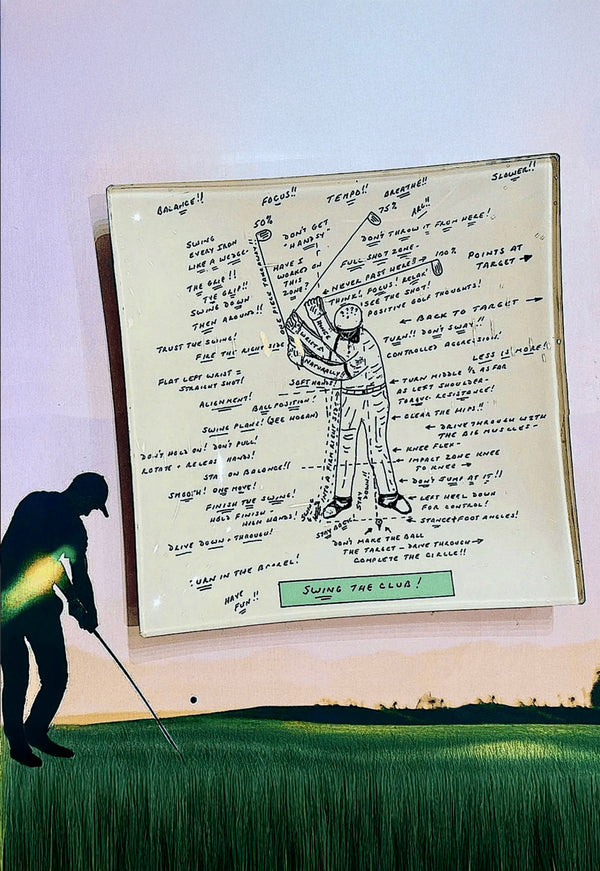 BALANCE!!
FOCUS!!
TEMPO!!
BREATHE!!
SLOWER!!
50%
75%
ARG!!
SWING
EVERY IRON
LIKE A WEDGE-
DON'T GET
"HANDSY"
DON'T THROW IT FROM HERE!
THE GRIP!!
THE GRIP!!
SWING DOWN
THEN AROUND!!
ONE PIECE TAKEAWAY!!
HAVE I
WORKED ON
THIS
ZONE?
FULL SHOT ZONE-
NEVER PAST HERE?→
100%
POINTS AT
TARGET →
THINK! FOCUS! RELAX!
SEE THE SHOT!
POSITIVE GOLF THOUGHTS!
← BACK TO TARGET →
TRUST THE SWING!
FIRE THE RIGHT SIDE
TURN!! DON'T SWAY!!
CONTROLLED AGGRESSION!
LESS IS MORE!
NATURALLY!
FLAT LEFT WRIST =
STRAIGHT SHOT!
SOFT HANDS!
← TURN MIDDLE ½ AS FAR
AS LEFT SHOULDER-
TORQUE. RESISTANCE!
ALIGNMENT!
BALL POSITION!
SWING PLANE! (SEE HOGAN)
← CLEAR THE HIPS!!
← DRIVE THROUGH WITH
THE BIG MUSCLES-
DON'T HOLD ON! DON'T PULL!
ROTATE + RELEASE HANDS!
← KNEE FLEX-
STAY ON BALANCE!!
← IMPACT ZONE KNEE
TO KNEE →
SMOOTH! ONE MOVE!
← DON'T JUMP AT IT!!
FINISH THE SWING!
HOLD FINISH-
HIGH HANDS!
STAY DOWN!!
← LEFT HEEL DOWN
FOR CONTROL!
← STANCE + FOOT ANGLES!
STAY BACK!
DRIVE DOWN + THROUGH!
DON'T MAKE THE BALL
THE TARGET - DRIVE THROUGH→
COMPLETE THE CIRCLE!!
TURN IN THE BARREL!
HAVE
FUN!!
SWING THE CLUB!